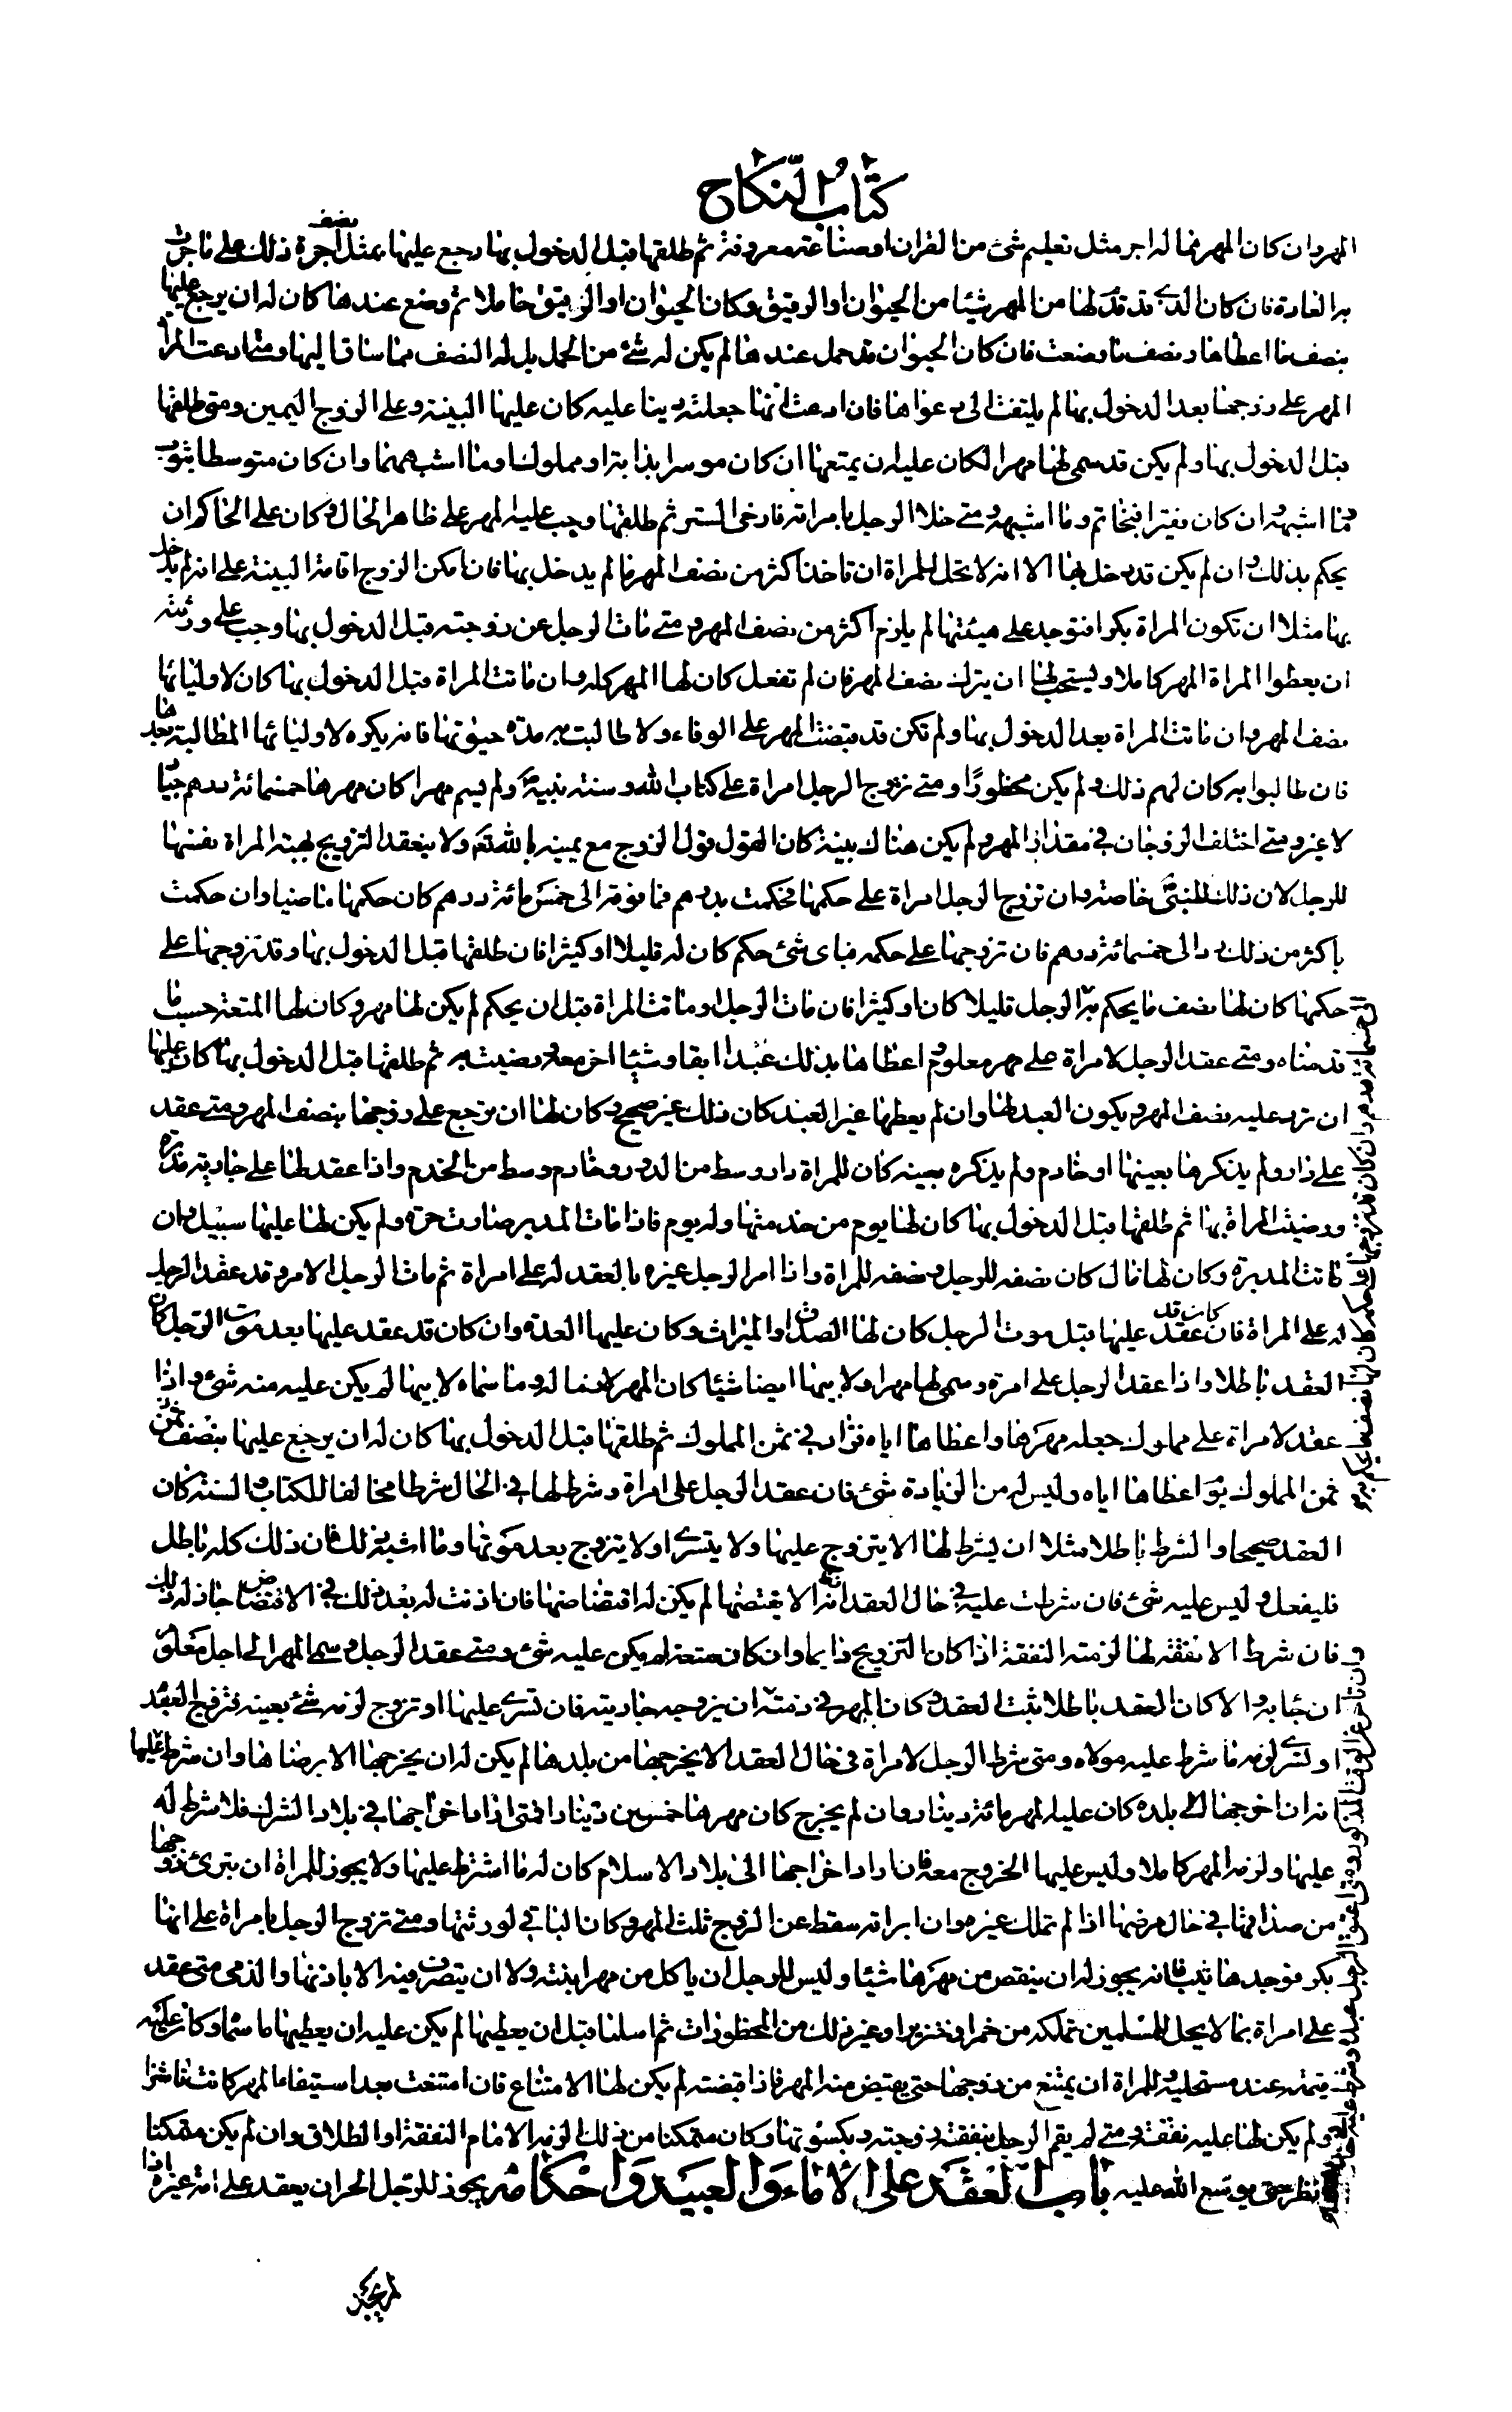 كتاب النكاح
المهر وان كان المهر مما له اجر مثل تعليم شئ من القران او صناعة معروفة ثم طلقها قبل الدخول بها رجع عليها بمثل نصف أجرة ذلك على ما جرت
به العادة فان كان الذي قد قدم لها من المهر شيئا من الحيوان او الرقيق وكان الحيوان او الرقيق حاملا ثم وضع عندها كان له ان يرجع عليها
بنصف ما اعطاها ونصف ما وضعت فان كان الحيوان قد حمل عندها لم يكن له شئ من الحمل بل له النصف مما ساق اليها ومتى ادعت المراة
المهر على زوجها بعد الدخول بها لم يلتفت الى دعواها فان ادعت انها جعلته دينا عليه كان عليها البينة وعلى الزوج اليمين ومتى طلقها
قبل الدخول بها ولم يكن قد سمى لها مهرا لكان عليه ان يمتعها ان كان موسرا بدابة او مملوك او ما اشبههما وان كان متوسطا بثوب
مما اشبهه وان كان فقيرا فبخاتم وما اشبهه ومتى خلا الرجل بامراته فارخى الستر ثم طلقها وجب عليه المهر على ظاهر الحال وكان على الحاكم ان
يحكم بذلك وان لم يكن قد دخل بها الا انه لا يحل للمراة ان تاخذ اكثر من نصف المهر ما لم يدخل بها فان امكن الزوج اقامة البينة على انه لم يدخل
بها مثلا ان تكون المراة بكرا فتوجد على هيئتها لم يلزم اكثر من نصف المهر ومتى مات الرجل عن زوجته قبل الدخول بها وجب على ورثته
ان يعطوا المراة المهر كاملا ويستحب لها ان يترك نصف المهر فان لم تفعل كان لها المهر كله وان ماتت المراة قبل الدخول بها كان لاوليائها
نصف المهر وان ماتت المراة بعد الدخول بها ولم تكن قد قبضت المهر على الوفاء ولا طالبت به مدة حيوتها فانه يكره لاوليائها المطالبة بعدها
فان طالبوا به كان لهم ذلك ولم يكن محظورا ومتى تزوج الرجل امراة على كتاب الله وسنة نبيه ص ولم يسم مهرا كان مهرها خمسمائة درهم جيادا
لا غير ومتى اختلف الزوجان في مقدار المهر ولم يكن هناك بينة كان القول قول الزوج مع يمينه بالله تع ولا ينعقد التزويج بهبة المراة نفسها
للرجل لان ذلك للنبي ص خاصة وان تزوج الرجل امراة على حكمها فحكمت بدرهم فما فوقه الى خمس مائة درهم كان حكمها ماضيا وان حكمت
باكثر من ذلك رد الى خمسمائة درهم فان تزوجها على حكمه فباى شئ حكم كان له قليلا او كثيرا فان طلقها قبل الدخول بها وقد تزوجها على
حكمها كان لها نصف ما يحكم به الرجل قليلا كان او كثيرا فان مات الرجل او ماتت المراة قبل ان يحكم لم يكن لها مهر وكان لها المتعة حسب ما
قدمناه ومتى عقد الرجل لامراة على مهر معلوم اعطاها بذلك عبدا ابقا وشيئا اخر معه ورضيت به ثم طلقها قبل الدخول بها كان عليها
ان ترد عليه نصف المهر ويكون العبد لها وان لم يعطها غير العبد كان ذلك غير صحيح وكان لها ان ترجع على زوجها بنصف المهر ومتى عقد
على دار ولم يذكرها بعينها او خادم ولم يذكره بعينه كان للمراة دار وسط من الدور وخادم وسط من الخدم واذا عقد لها على جارية مدبرة
ورضيت المراة بها ثم طلقها قبل الدخول بها كان لها يوم من خدمتها وله يوم فاذا مات المدبر صارت حرة ولم يكن لها عليها سبيل وان
ماتت المدبرة وكان لها مال كان نصفه للرجل ونصفه للمراة واذا امر الرجل غيره بالعقد له على امراة ثم مات الرجل الامر وقد عقد الرجل
له على المراة فان كان قد عقد عليها قبل موت الرجل كان لها الصداق والميراث وكان عليها العدة وان كان قد عقد عليها بعد موت الرجل كان
العقد باطلا واذا عقد الرجل على امرة وسمى لها مهرا ولابيها ايضا شيئا كان المهر لازما له وما سماه لابيها لم يكن عليه منه شئ واذا
عقد لامراة على مملوك جعله مهرها واعطاها اياه فزاد في ثمن المملوك ثم طلقها قبل الدخول بها كان له ان يرجع عليها بنصف ثمن
ثمن المملوك يوم اعطاها اياه وليس له من الزيادة شئ فان عقد الرجل على امراة وشرط لها في الحال شرطا مخالفا للكتاب والسنة كان
العقد صحيحا والشرط باطلا مثلا ان يشرط لها الا يتزوج عليها ولا يتسرى او لا يتزوج بعد موتها وما اشبه ذلك فان ذلك كله باطل
فليفعل وليس عليه شئ فان شرطت عليه في حال العقد انه الا يفتضها لم يكن له افتضاضها فان اذنت له بعد ذلك في الافتضاض جاز له ذلك
فان شرط الا نفقة لها لزمته النفقة اذا كان التزويج دايما وان كان متعة لم يكن عليه شئ ومتى عقد الرجل وسما المهر الى اجل معلوم
ان جاء به والا كان العقد باطلا ثبت العقد وكان المهر في ذمته
او تسرى لزمه ما شرط عليه مولاه ومتى شرط الرجل لامراة في حال العقد الا يخرجها من بلدها لم يكن له ان يخرجها الا برضاها وان شرط عليها
انه ان اخرجها الى بلده كان عليه المهر مائة دينار وان لم يخرج كان مهرها خمسين دينارا فمتى اراد اخراجها في بلاد الشرك فلا شرط له
عليها ولزمه المهر كاملا وليس عليها الخروج معه فان اراد اخراجها الى بلاد الاسلام كان له ما اشترط عليها ولا يجوز للمراة ان تبرئ زوجها
من صداقها في حال مرضها اذا لم تملك غيره وان ابراته سقط عن الزوج ثلث المهر وكان الباقي لورثتها ومتى تزوج الرجل بامراة على انها
بكر فوجدها ثيبا فانه يجوز له ان ينقص من مهرها شيئا وليس للرجل ان ياكل من مهر ابنته ولا ان يتصرف فيه الا باذنها والذمى متى عقد
على امراة بما لا يحل للمسلمين تملكه من خمر او خنزير او غير ذلك من المحظورات ثم اسلما قبل ان يعطيها لم يكن عليه ان يعطيها ما سما وكان عليه
قيمته عند مستحليه وللمراة ان يمتنع من زوجها حتى يقبض منه المهر فاذا قبضته لم يكن لها الامتناع فان امتنعت بعد استيفاء المهر كانت ناشزا
ولم يكن لها عليه نفقة ومتى لم يقم الرجل بنفقة زوجته وبكسوتها وكان متمكنا من ذلك الزمه الامام النفقة او الطلاق وان لم يكن متمكنا
انظر حتى يوسع الله عليه باب العقد على الاماء والعبيد واحكامه يجوز للرجل الحر ان يعقد على امة غيره اذا
لم يجد
الى خمسمائة درهم وان كان قد تزوجها على حكمه كان لها نصف ما يحكم به هو